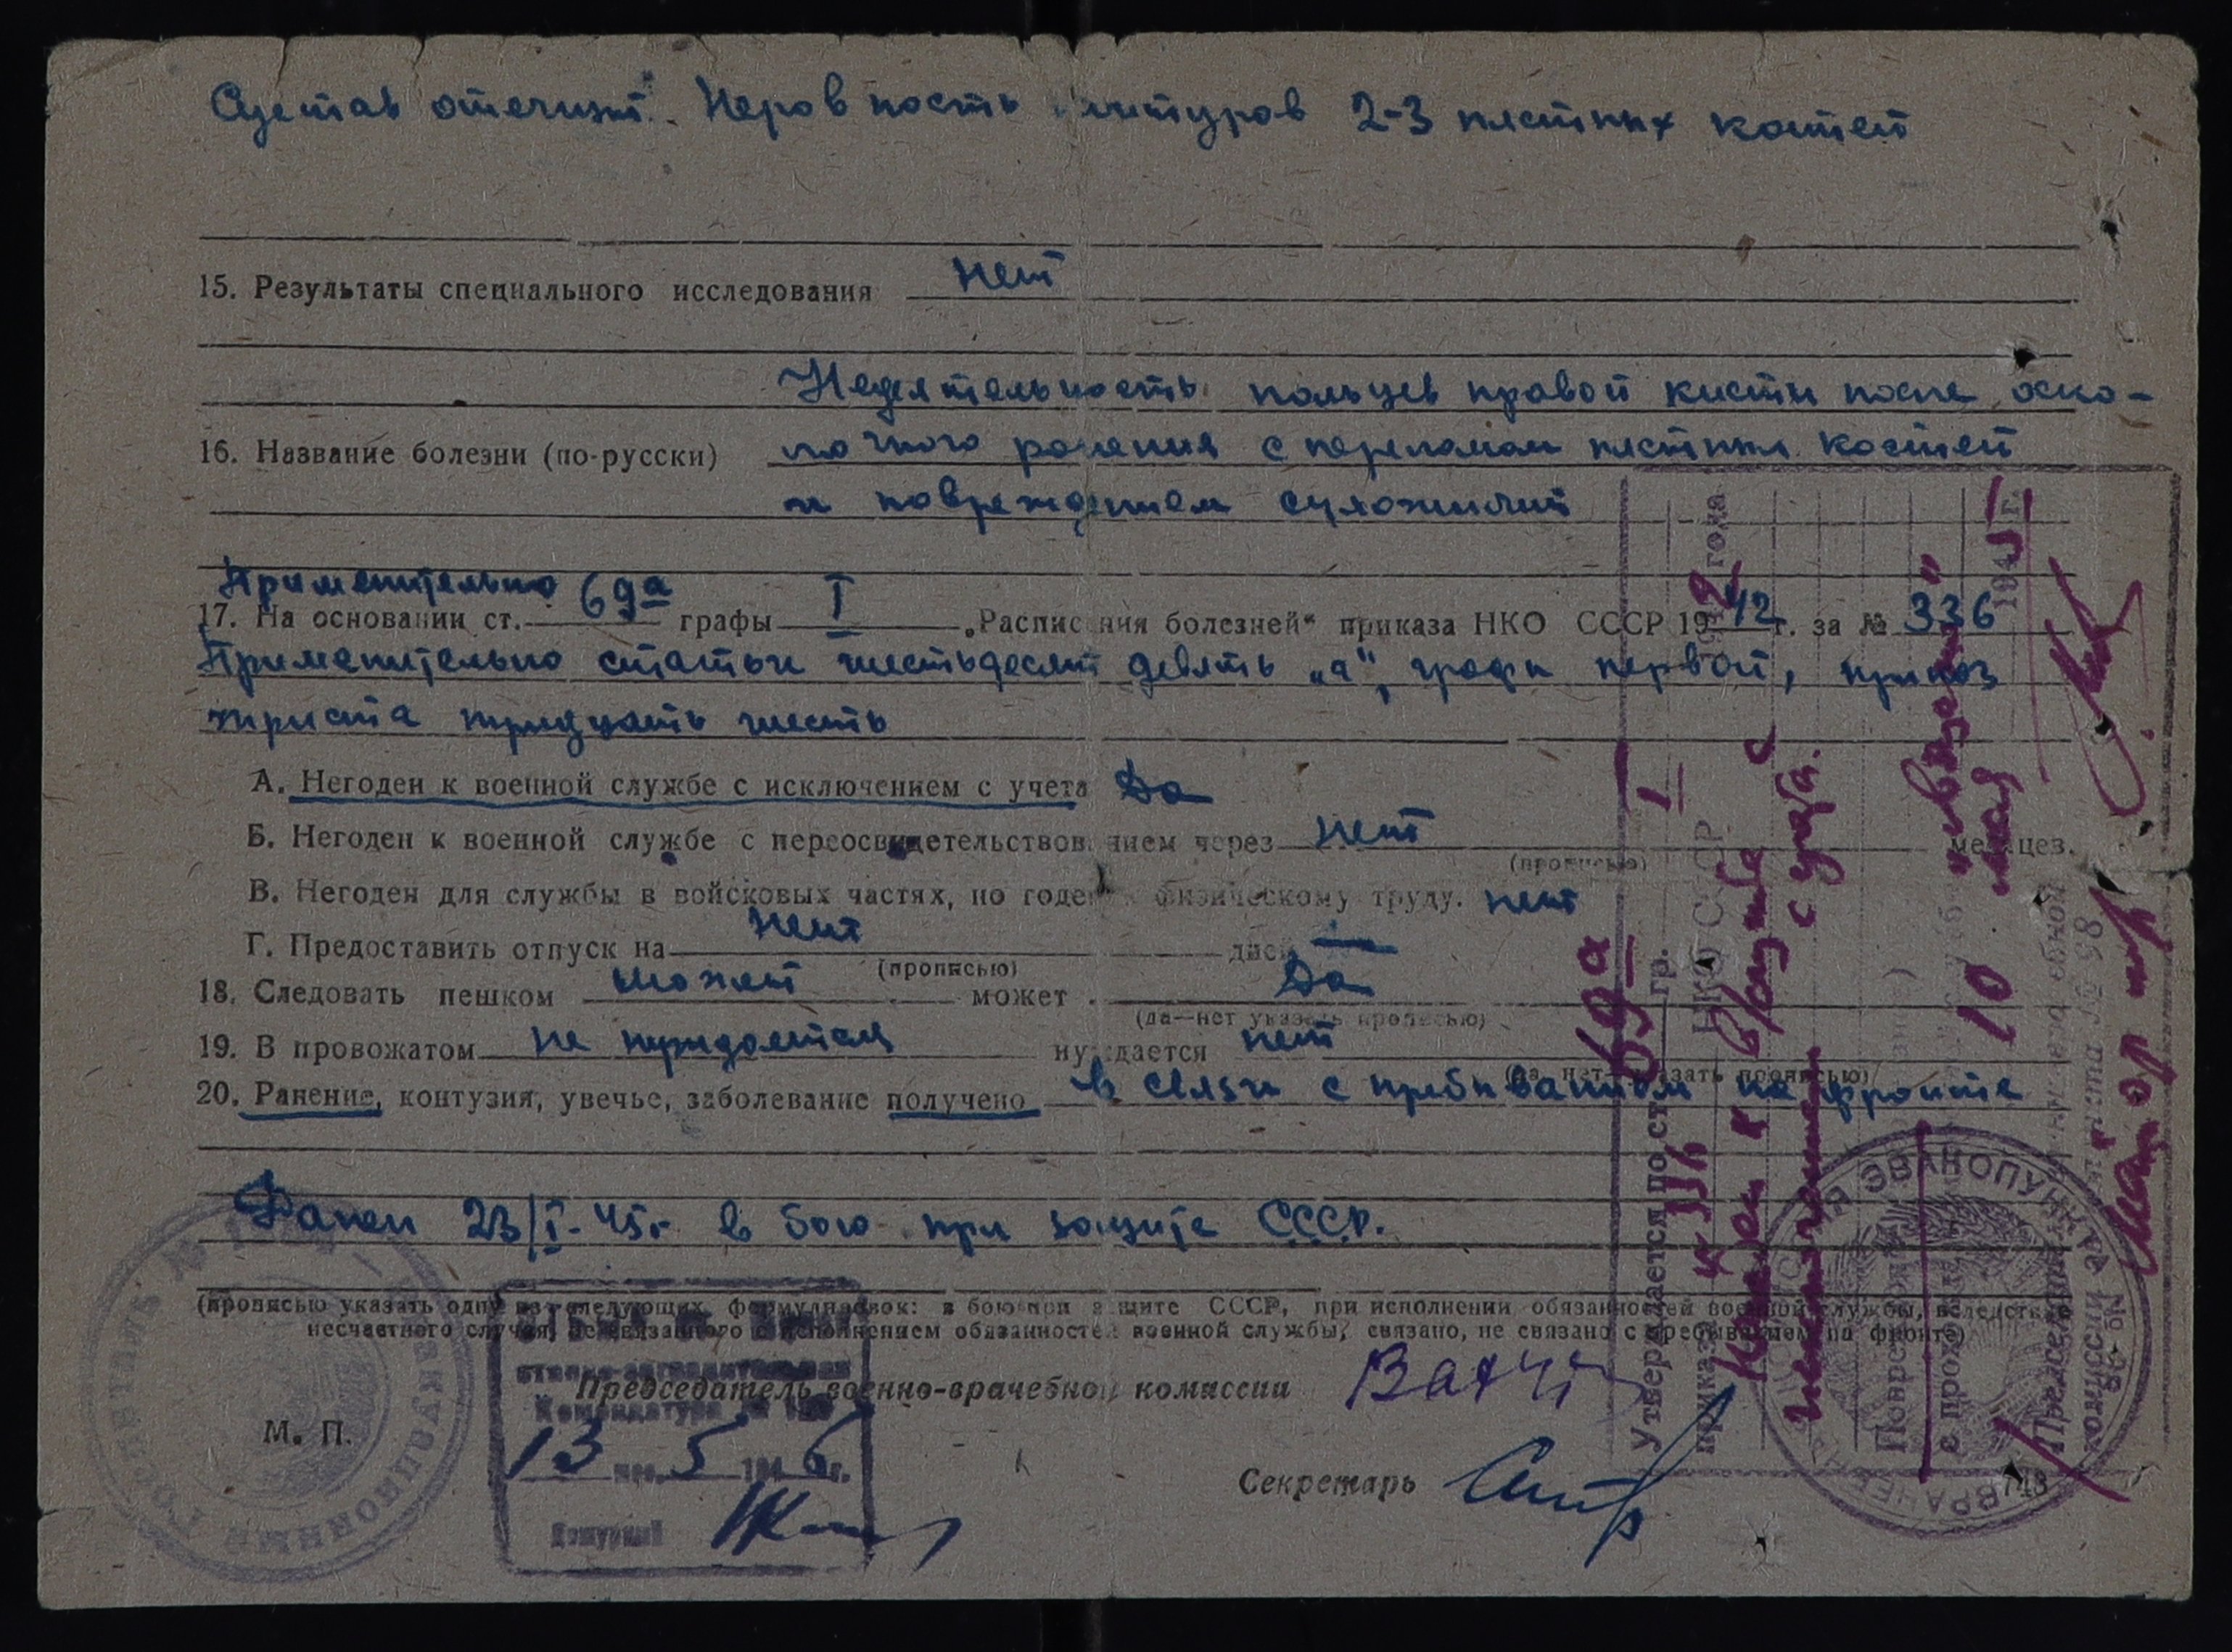 Сустав отечный. Неровность контуров 2-3 пястных костей
15. Результаты специального исследования нет
Недеятельность пальцев правой кисти после оско-
16. Название болезни (по-русски) лочного ранения с переломом пястных костей
и повреждением сухожилий
Применительно
17. На основании ст. 69а графы I „Расписания болезней“ приказа НКО СССР 1942 г. за № 336
Применительно статьи шестьдесят девять „а“, графы первой, приказ
триста тридцать шесть
А. Негоден к военной службе с исключением с учета Да
Б. Негоден к военной службе с переосвидетельствованием через нет месяцев.
(прописью)
В. Негоден для службы в войсковых частях, но годен к физическому труду. нет
Г. Предоставить отпуск на нет дней —
(прописью)
18. Следовать пешком может может Да
(да—нет указать прописью)
19. В провожатом не нуждается нуждается нет
(да, нет—указать прописью)
20. Ранение, контузия, увечье, заболевание получено в связи с пребыванием на фронте
Ранен 23/I-45г в бою при защите СССР.
(прописью указать одну из следующих формулировок: в бою при защите СССР, при исполнении обязанностей военной службы, вследствие
несчастного случая, не связанного с исполнением обязанностей военной службы, связано, не связано с пребыванием на фронте)
Председатель военно-врачебной комиссии
М. П.
Секретарь
Комендатура
13 мес. 5 1946 г.
Дежурный
ЭВАКУАЦИОННЫЙ ГОСПИТАЛЬ №
Утверждается по ст. 69а гр. I
приказа НКО СССР 1942 года
с исключением с учета.
Поврежд
с прохожд
10 мая 1945 г.
Председатель
комиссии эвакопункта № 98
майор м/с